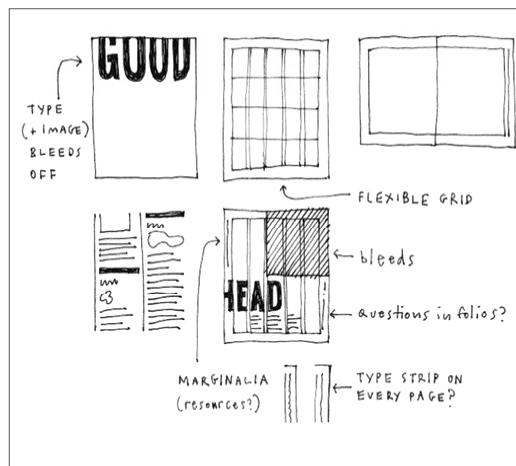 GOOD
TYPE
(+ IMAGE)
BLEEDS
OFF
FLEXIBLE GRID
bleeds
HEAD
questions in folios?
MARGINALIA
(resources?)
TYPE STRIP ON
EVERY PAGE?